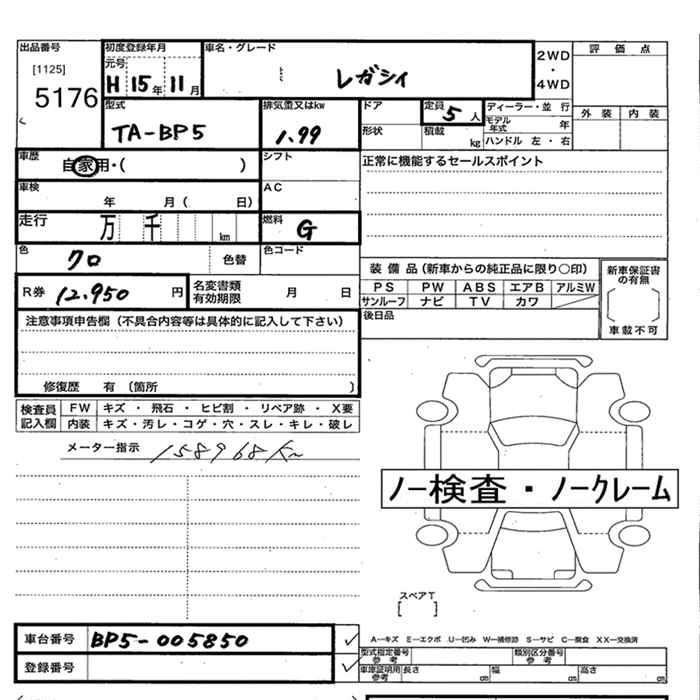 出品番号 初度登録年月 車名・グレード 2WD・4WD 評価点
[1125] 元号
5176 H 15年 11月 レガシィ
外装 内装
型式 排気量又はkw ドア 定員 5人 ディーラー・並行
TA-BP5 1.99 形状 積載 kg モデル年式 年
ハンドル 左・右
車歴 自家用・( ) シフト 正常に機能するセールスポイント
車検 年 月( 日) AC
走行 万 千 km 燃料 G
色 クロ 色替 色コード
装備品(新車からの純正品に限り○印) 新車保証書の有無
PS PW ABS エアB アルミW
サンルーフ ナビ TV カワ
車載不可
R券 12,950 円 名変書類有効期限 月 日
後日品
注意事項申告欄(不具合内容等は具体的に記入して下さい)
修復歴 有 (箇所 )
検査員記入欄 FW キズ・飛石・ヒビ割・リペア跡・X要
内装 キズ・汚レ・コゲ・穴・スレ・キレ・破レ
メーター指示 158968Km
ノー検査・ノークレーム
スペアT
[ ]
車台番号 BP5-005850 ✓
A―キズ E―エクボ U―凹み W―補修跡 S―サビ C―腐食 XX―交換済
登録番号 ✓
型式指定番号参考 類別区分番号参考
車庫証明用参考 長さ cm 幅 cm 高さ cm